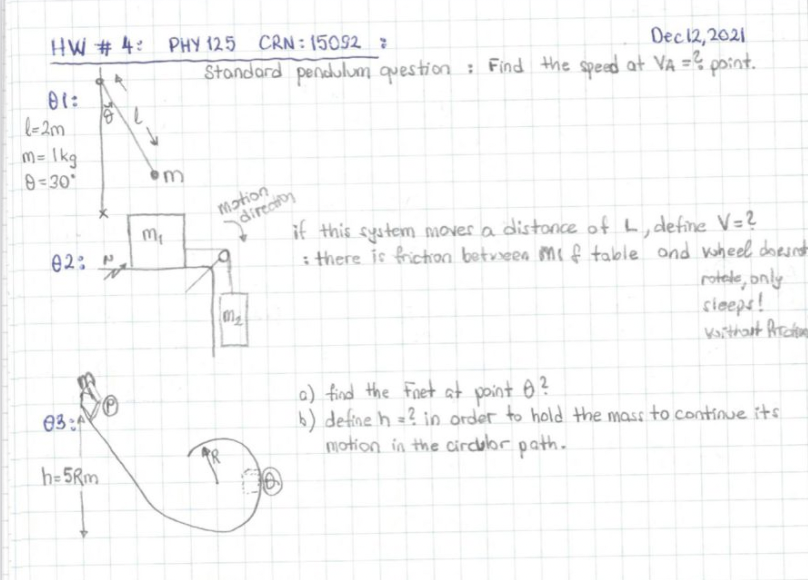 HW # 4: PHY 125 CRN: 15092 :
Dec 12, 2021
Standard pendulum question : Find the speed at VA =? point.
θ1:
l=2m
m=1kg
θ=30°
θ
l
m
motion
direction
if this system moves a distance of L, define V=?
: there is friction between m1 & table and wheel doesnot
rotate, only
sleeps!
without friction
θ2:
m1
N
m2
a) find the Fnet at point θ?
b) define h =? in order to hold the mass to continue its
motion in the circular path.
m
P
θ3:
R
θ
h=5Rm